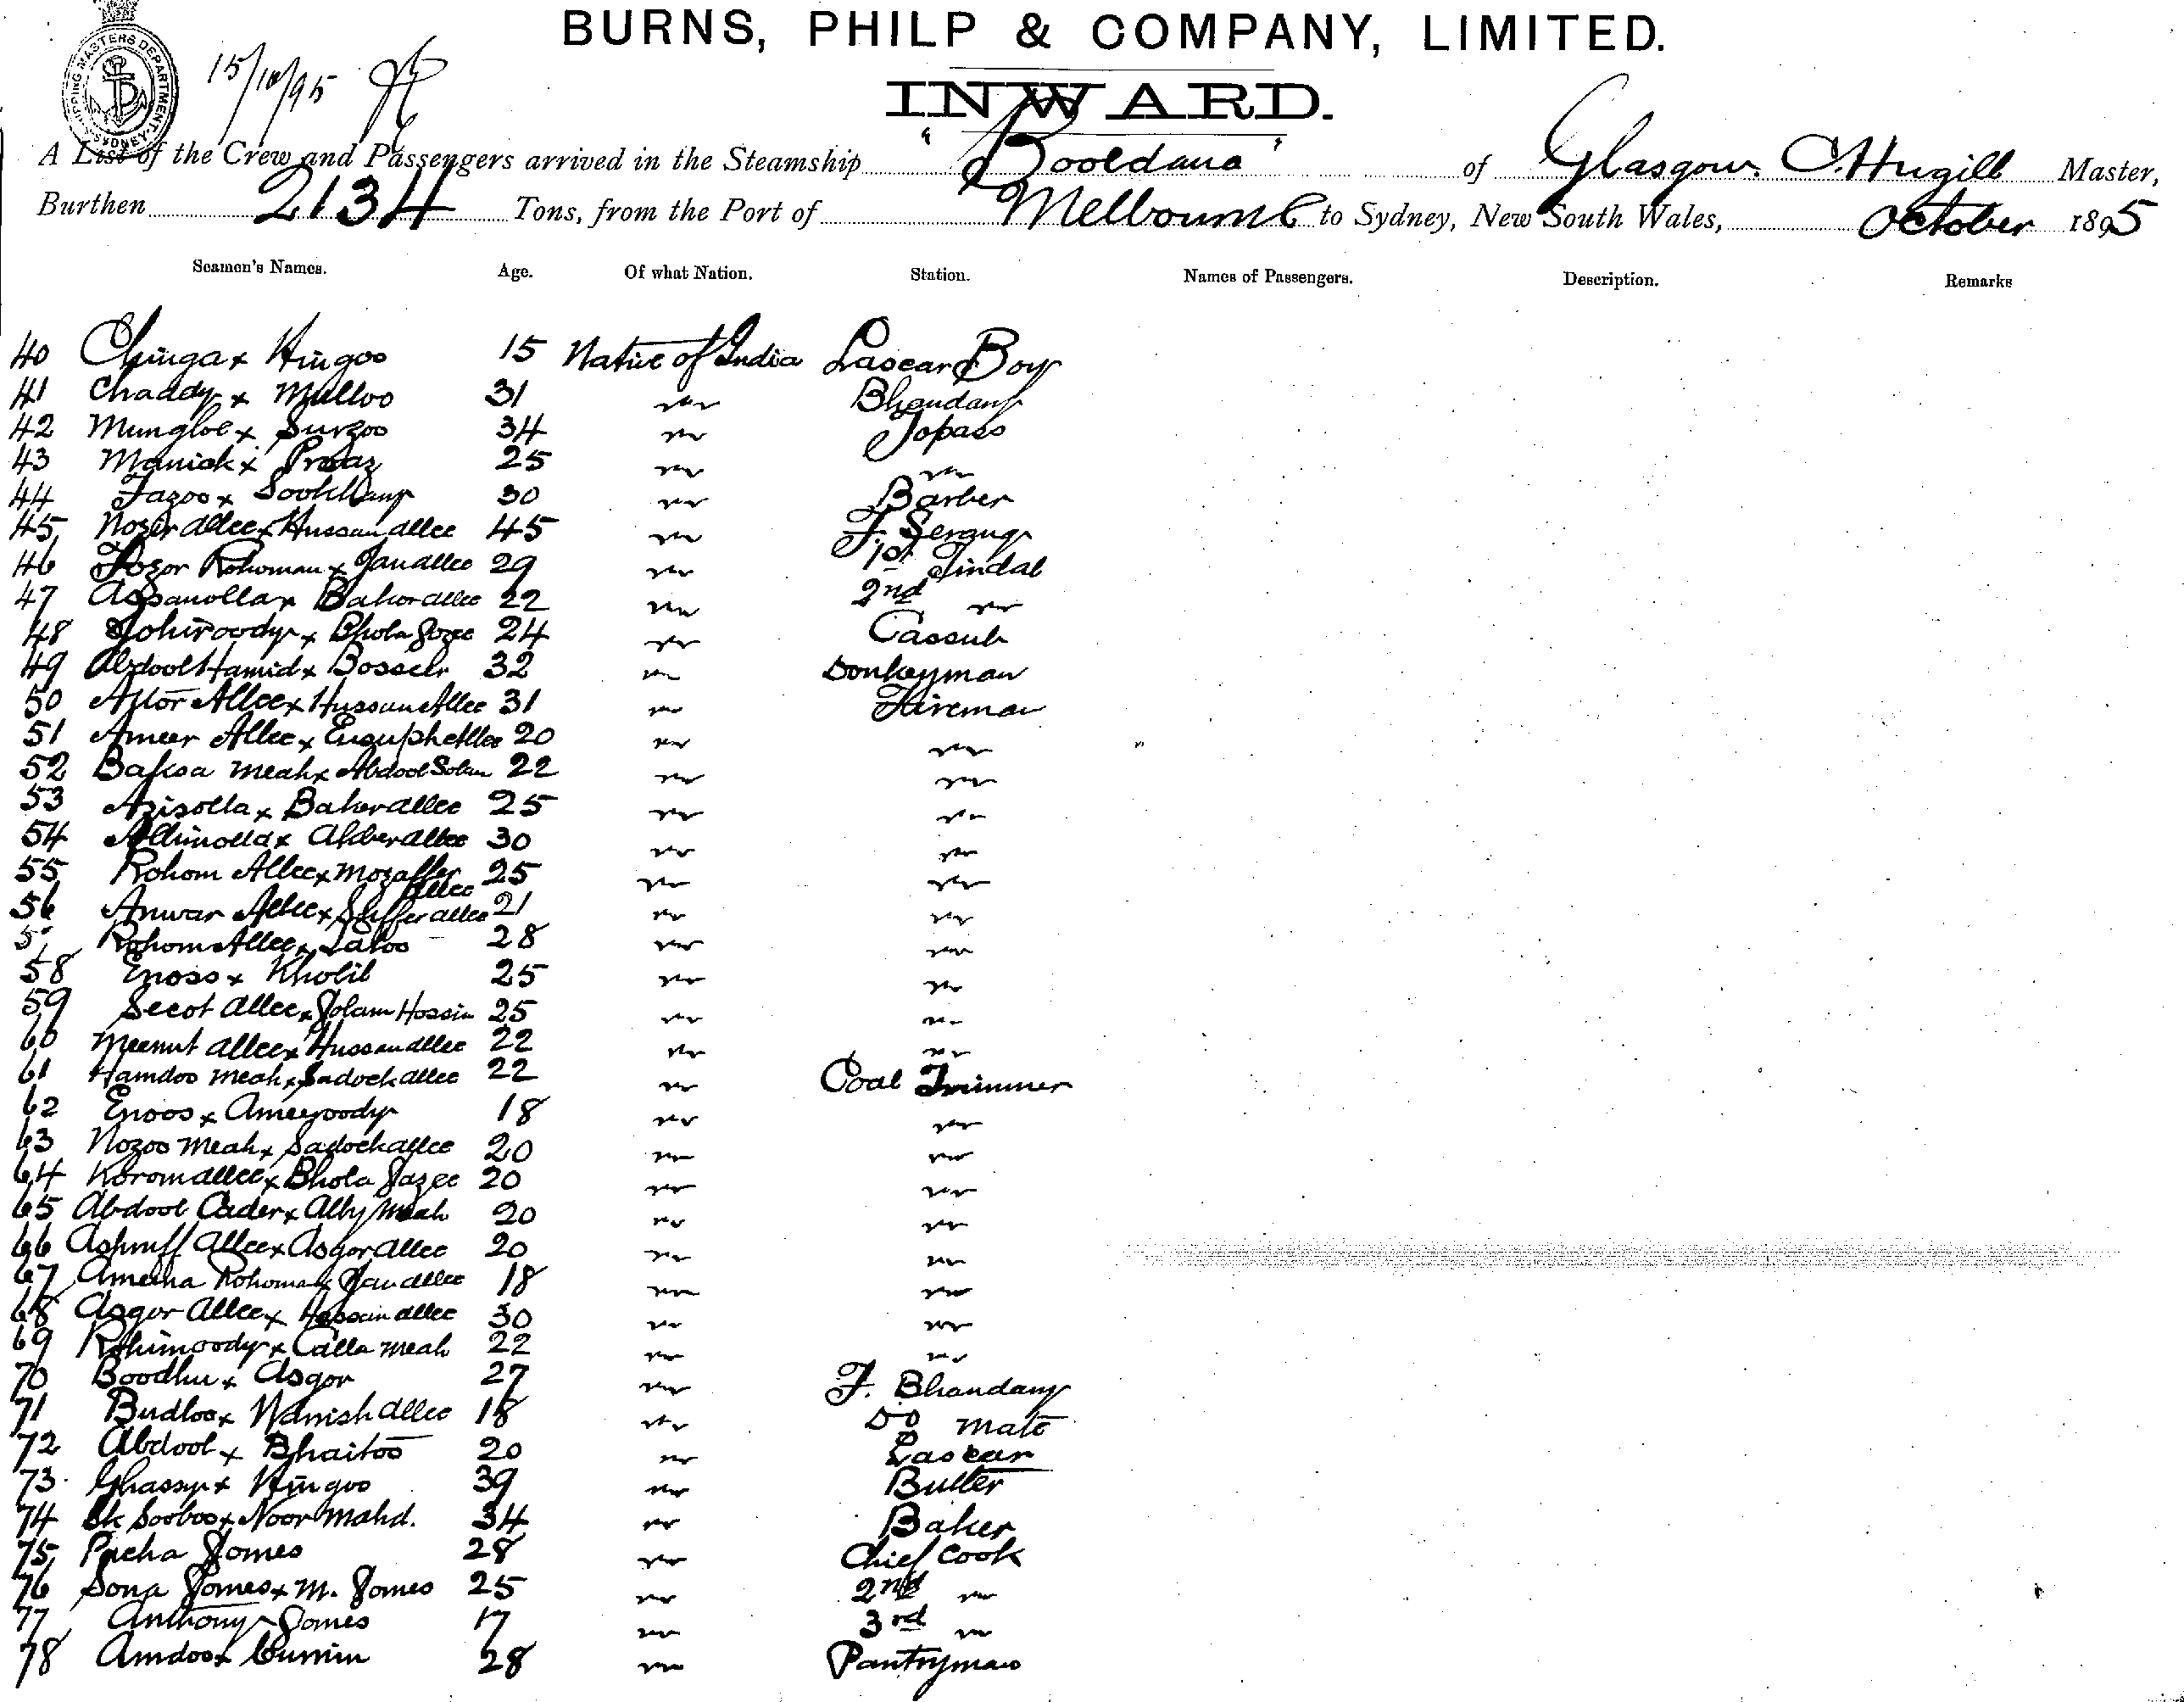 BURNS, PHILP & COMPANY, LIMITED.
SHIPPING MASTERS DEPARTMENT SYDNEY
15/10/95
INWARD.
A List of the Crew and Passengers arrived in the Steamship "Booldana" of Glasgow. C. Hugill Master,
Burthen 2134 Tons, from the Port of Melbourne to Sydney, New South Wales, October 1895
Seamen's Names. Age. Of what Nation. Station. Names of Passengers. Description. Remarks
40 Chinga x Hingoo 15 Native of India Lascar Boy
41 Chaddy x Mulloo 31 " Bhandary
42 Mungloe x Surzoo 34 " Topass
43 Manick x 25 " "
44 Fazoo x 30 " Barber
45 Nozir Allee x Hussan allee 45 " F. Serang
46 Fozor Rohoman x Janallee 29 " 1st Tindal
47 Assanolla x Bakorallee 22 " 2nd "
48 Johiroody x Bhola Gozee 24 " Cassub
49 Abdool Hamid x 32 " Donkeyman
50 Allee x Hussan Allee 31 " Fireman
51 Ameer Allee x Eusuph Allee 20 " "
52 Baksa Meah x Abdool Soban 22 " "
53 Azisolla x Bakerallee 25 " "
54 Allimolla x Akberallee 30 " "
55 Rohom Allee x Mozaffer Allee 25 " "
56 Anwar Allee x Sufferallee 21 " "
57 Rohom Allee x Laloo 28 " "
58 Enoss x Kholil 25 " "
59 Secot allee x Golam Hossin 25 " "
60 Meemut allee x Hussanallee 22 " "
61 Hamdoo Meah x Sadockallee 22 " Coal Trimmer
62 Enoos x Ameeroody 18 " "
63 Nozoo Meah x Sadockallee 20 " "
64 Koromallee x Bhola Gazee 20 " "
65 Abdool Cader x Ally Meah 20 " "
66 Ashruff Allee x Asgorallee 20 " "
67 Rohoman x Janallee 18 " "
68 Asgor Allee x Hossein allee 30 " "
69 Rohimoody x Calla Meah 22 " "
70 Boodhu x Asgor 27 " F. Bhandary
71 Budloo x Wanish allee 18 " Do Mate
72 Abdool x Bhaitoo 20 " Lascar
73. Ghassy x Hingoo 39 " Butler
74 Sk Sooboo x Noor Mahd. 34 " Baker
75 Pacha Gomes 28 " Chief Cook
76 Sona Gomes x M. Gomes 25 " 2nd "
77 Anthony Gomes 17 " 3rd "
78 Amdoo x Cumim 28 " Pantryman